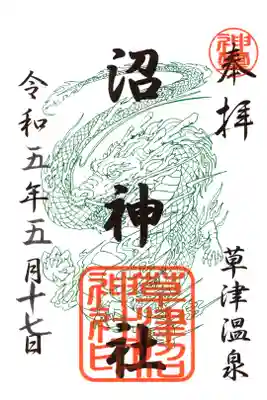 奉拝
草津温泉
沼神社
草津沼
神社印
令和五年五月十七日